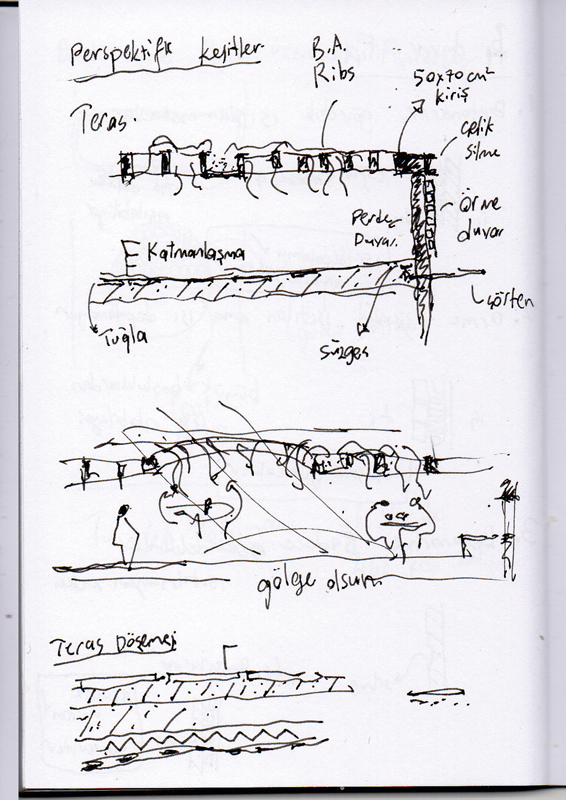 Perspektifik kesitler
B.A.
Ribs
50x70 cm²
kiriş
Teras
çelik
silme
örme
duvar
Perde
Duvar
Katmanlaşma
Tuğla
süzgeç
gölge olsun
Teras Döşemesi